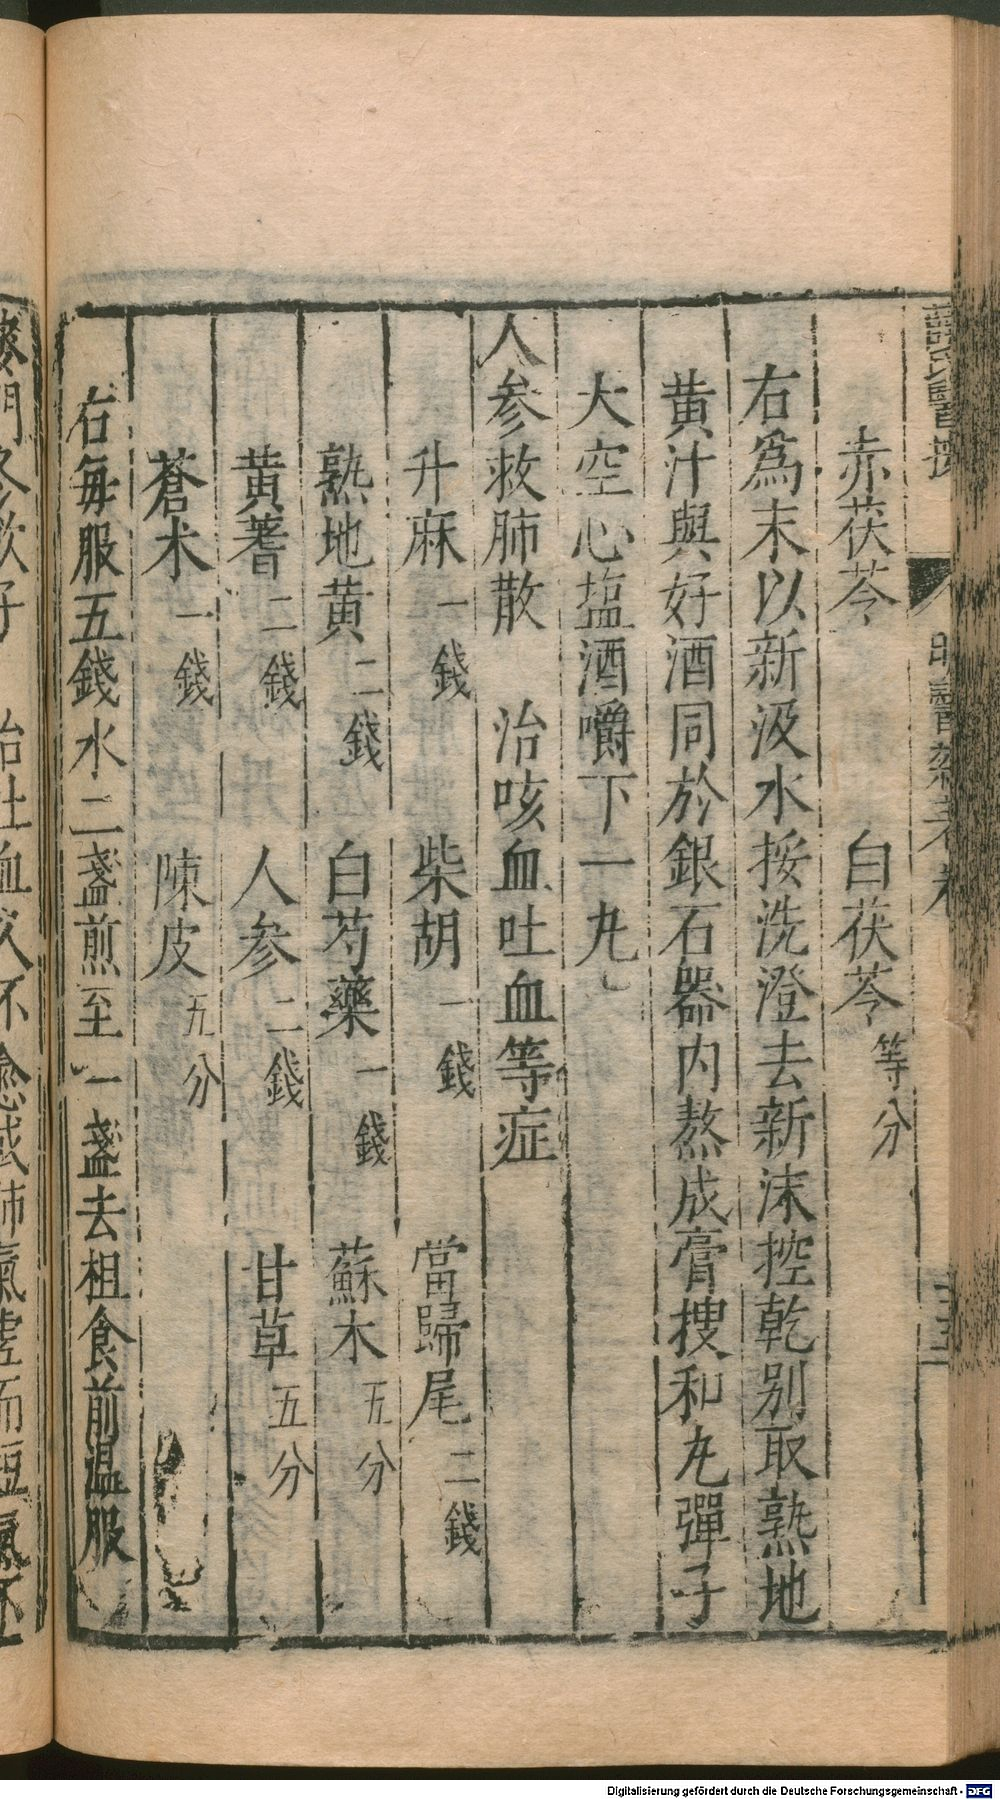 赤茯苓 白茯苓等分
右爲末以新汲水挼洗澄去新沫控乾别取熟地
黄汁與好酒同於銀石器内熬成膏搜和丸彈子
大空心塩酒嚼下一丸
人参救肺散 治咳血吐血等症
升麻一錢 柴胡一錢 當歸尾二錢
熟地黄二錢 白芍藥一錢 蘇木五分
黄蓍二錢 人参二錢 甘草五分
蒼术一錢 陳皮五分
右每服五錢水二盞煎至一盞去柤食前温服
Digitalisierung gefördert durch die Deutsche Forschungsgemeinschaft - DFG